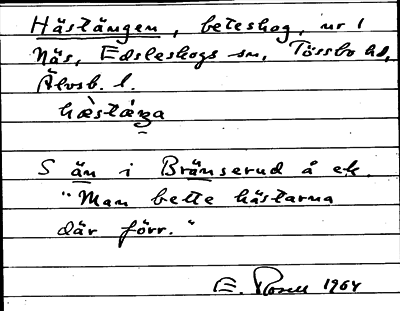 Hästängen, beteskog, nr 1
Näs, Edsleskogs sn, Tössbo hd,
Älvsb. l.
hæ̀stæ̀ŋa
S än i Bränserud å ek.
"Man bette hästarna
där förr."
E. Rosell 1964